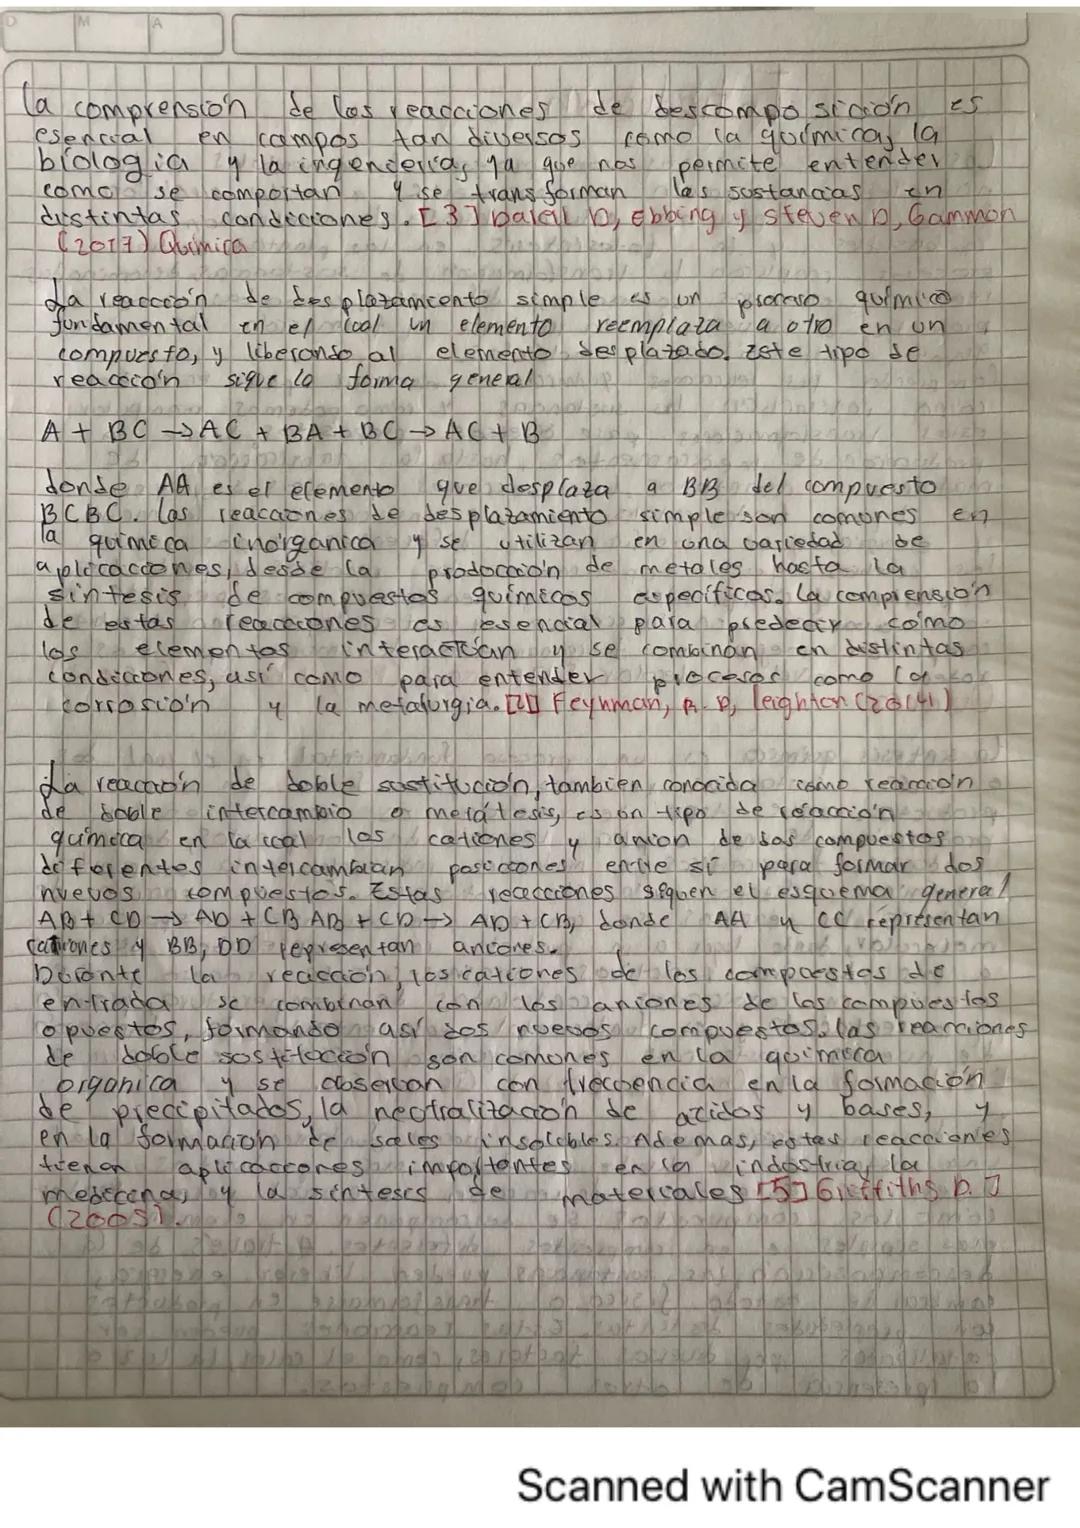 D M A
La comprensión de las reacciones de descomposición es
esencial en campos tan diversos como la química, la
biologia y la ingenieria, ya que nos permite entender
como se comportan y se transforman las sustancias en
distintas condiciones. [3] Ebbing y Steven D, Gammon
(2017) Química
La reacción de desplazamiento simple es un proceso químico
fundamental en el cual un elemento reemplaza a otro en un
compuesto, y liberando al elemento desplazado. Este tipo de
reacción sigue la forma general
A + BC → AC + BA + BC → AC + B
donde AA es el elemento que desplaza a BB del compuesto
BCBC. Las reacciones de desplazamiento simple son comunes en
la quimica inorganica y se utilizan en una variedad de
aplicaciones, desde la producción de metales hasta la
sintesis de compuestos químicos especificos. La comprensión
de estas reacciones es esencial para predecir como
los elementos interactúan y se combinan en distintas
condiciones, así como para entender procesos como la
corrosión y la metalurgia. [2] Feynman, R. P, leighton (2014)
La reacción de doble sustitución, tambien conocida como reacción
de doble intercambio o metátesis, es un tipo de reacción
química en la cual los cationes y anion de sos compuestos
diferentes intercambian posiciones entre sí para formar dos
nuevos compuestos. Estas reacciones siguen el esquema general
AB + CD → AD + CB AB + CD → AD + CB, donde AA y CC representan
cationes y BB, DD representan aniones.
Durante la reacción, los cationes de los compuestos de
entrada se combinan con los aniones de los compuestos
opuestos, formando así dos nuevos compuestos. las reacciones
de doble sustitución son comunes en la química
organica y se observan con frecuencia en la formación
de precipitados, la neutralización de acidos y bases, y
en la formación de sales insolubles. Ademas, estas reacciones
tienen aplicaciones importantes en la industria, la
medicina, y la sintesis de materiales [5] Griffiths D. J
(2005).
Scanned with CamScanner